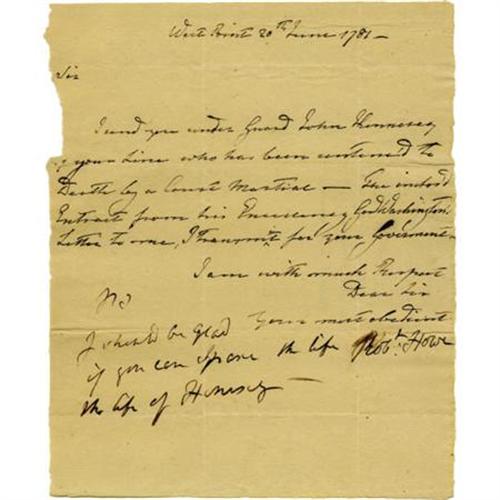 West Point 20th June 1781 —
Sir
I send you under Guard John Hennesey
of your Line who has been sentenc'd to
Death by a Court Martial — The inclos'd
Extract from his Excellency Genl Washington's
Letter to me, I transmit for your Government —
I am with much Respect
Dear Sir
Your most obedient
Robt. Howe
I should be glad
if you can spare the life
the life of Hennesey